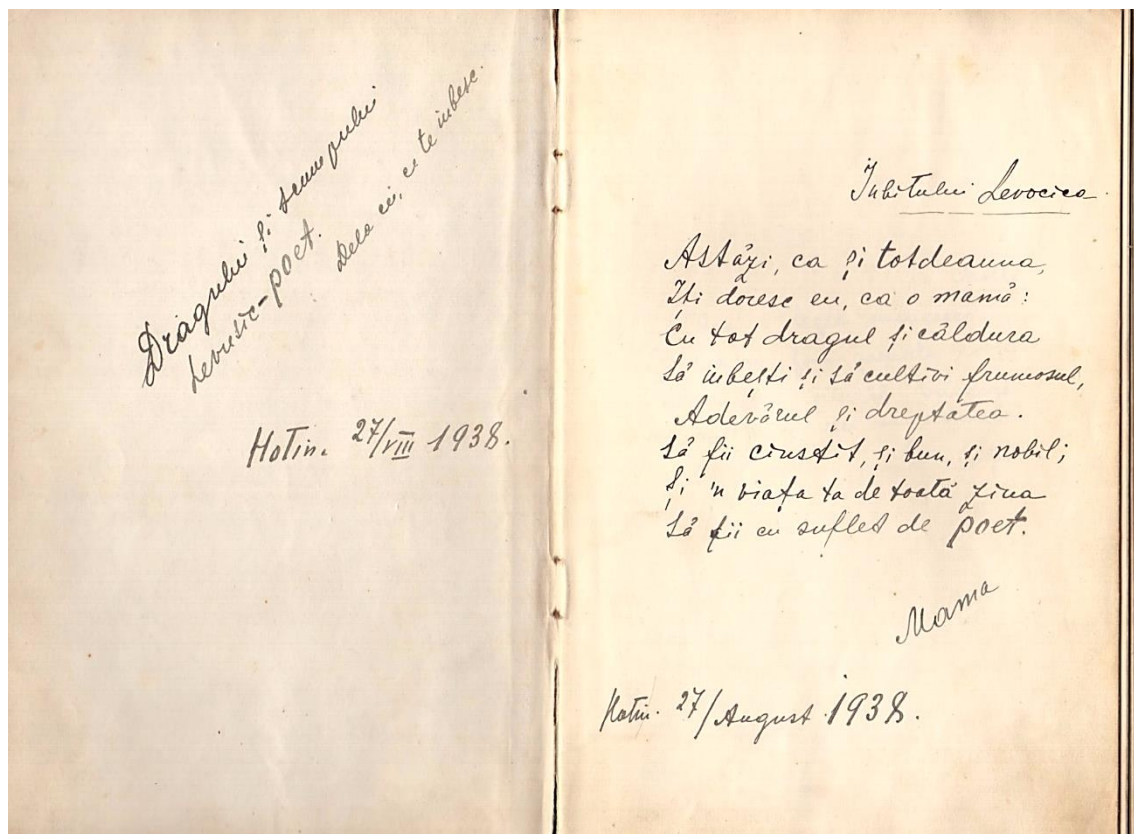 Dragului și scumpului
Levusic-poet.
Dela cei, ce te iubesc.
Hotin. 27/VIII 1938.
Iubitului Levocica
Astăzi, ca și totdeauna,
Îți doresc eu, ca o mamă:
Cu tot dragul și căldura
Să iubești și să cultivi frumosul,
Adevărul și dreptatea.
Să fii cinstit, și bun, și nobil;
Și 'n viața ta de toată ziua
Să fii cu suflet de poet.
Mama
Hotin. 27/August 1938.